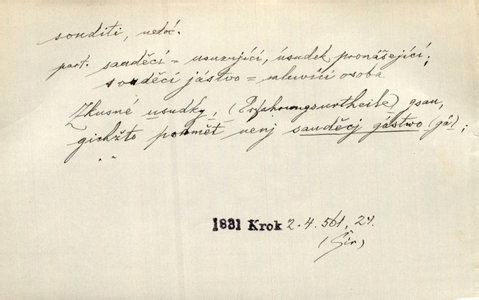 souditi, nedok.
part. sauděcí = usuzující, úsudek pronášející;
souděcí jástvo = mluvící osoba
Zkusné usudky, (Erfahrungsurtheile) gsau,
gichžto podmět nenj sauděcj gástwo (já);
1831 Krok 2. 4. 561, 24.
(Šír)